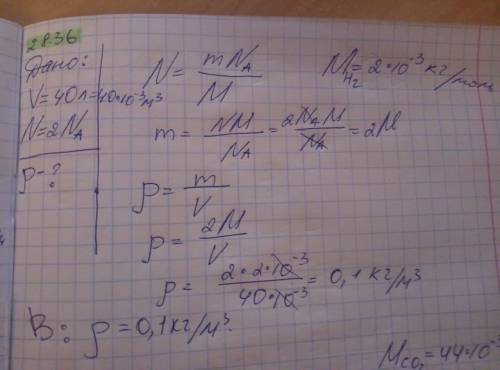 2836
Дано:
V=40л=40·10⁻³м³
N=2N_A
ρ-?
N = mN_A / M
M_H₂ = 2·10⁻³ кг/моль
m = NM / N_A = 2N_A M / N_A = 2M
ρ = m / V
ρ = 2M / V
ρ = 2·2·10⁻³ / 40·10⁻³ = 0,1 кг/м³
В: ρ = 0,1 кг/м³.
M_CO₂ = 44·10⁻³